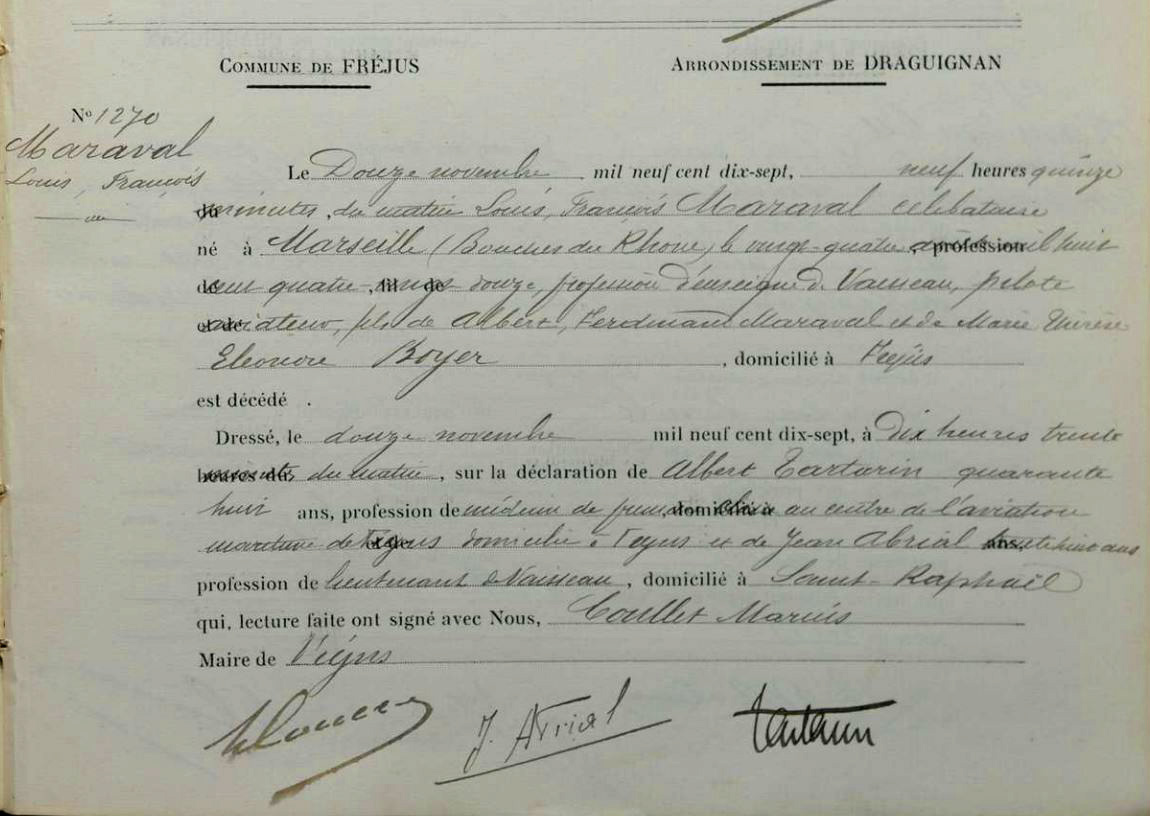 COMMUNE DE FRÉJUS
ARRONDISSEMENT DE DRAGUIGNAN
No 1270
Maraval
Louis, François
Le Douze novembre, mil neuf cent dix-sept, neuf heures quinze
minutes, du matin Louis, François Maraval célibataire
né à Marseille (Bouches du Rhone) le vingt-quatre , profession mil huit
cent quatre-vingt douze, profession d'enseigne d. Vaisseau, pilote
aviateur, fils de Albert, Ferdinand Maraval et de Marie Thérèse
Eleonore Boyer, domicilié à Fréjus
est décédé .
Dressé, le douze novembre mil neuf cent dix-sept, à Dix heures trente
minutes du matin, sur la déclaration de Albert Tartarin quarante
huit ans, profession de médecin de , domicilié à au centre de l'aviation
maritime de Fréjus domicilié à Fréjus et de Jean Abrial ans
profession de lieutenant de Vaisseau, domicilié à Saint-Raphaël
qui, lecture faite ont signé avec Nous, Coullet Marius
Maire de Fréjus
J. Abrial
Tartarin